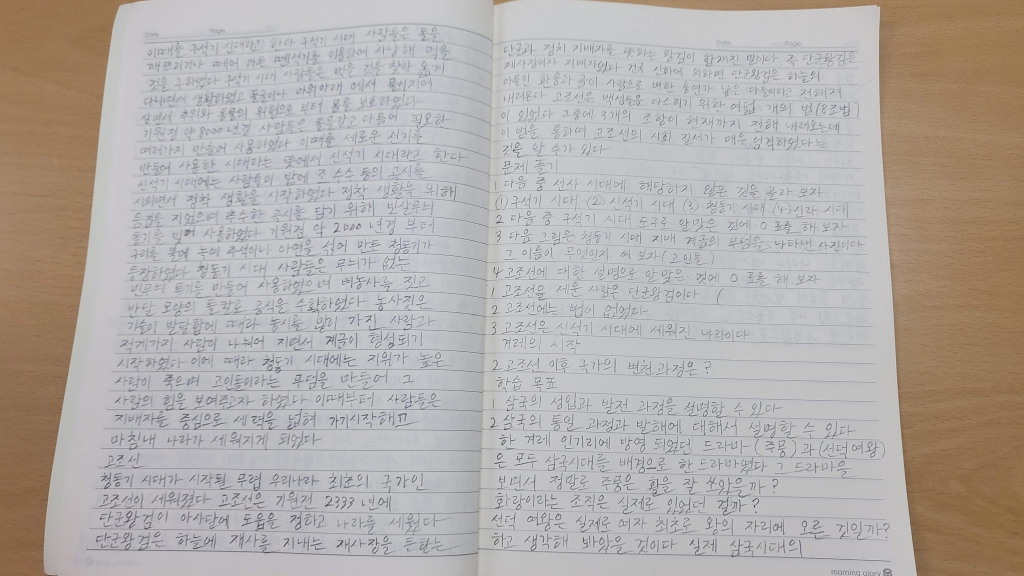 Date Page
이때를 구석기 시대라고 한다 구석기 시대 사람들은 돌을
깨뜨리거나 떼어 만든 뗀석기를 이용하여 사냥해 먹을
것을 구하였다 구석기 시대 사람들은 먹을 것을 찾아 옮겨
다니면서 생활하였고 동굴이나 바위아래에서 무리지어
살면서 추위와 동물의 위험으로 부터 몸을 보호하였다
기원전 약 8000년경 사람들은 돌을갈고 다듬어 필요한
여러가지 만들어 사용하였다 이때를 새로운 석기를
만들어 사용한 시대라는 뜻에서 신석기 시대라고 한다
신석기 시대에는 사람들이 밭에 조 수수 등의 곡식을
심으면서 정착 생활을 시작하였다 정착 생활을 위해
움집을 지었으며 추수한 곡식을 담기 위해 빗살무늬
토기를 빚어 사용하였다 기원전 약 2000년경 부터
구리를 녹여 주석이나 아연을 섞어 만든 청동기가
등장하였다 청동기 시대 사람들은 무늬가 없는
민무늬 토기를 만들어 사용하였으며 벼농사를 짓고
반달 모양의 돌칼로 곡식을 수확하였다 농사짓은
기술이 발달됨에 때라 농지를 많이 가진 사람과
적게가지 사람이 나뉘어 지면서 계급이 형성되기
시작하였다 이에 때라 청동기 시대에는 지위가 높은
사람이 죽으며 고인돌이라는 무덤을 만들어 그
사람의 힘을 보여주고자 하였다 이때부터 사람들은
지배자를 중심으로 세력을 넓혀 가기시작해고
마침내 나라가 세워지게 되었다
고조선
청동기 시대가 시작될 무렵 우리나라 최초의 국가인
고조선이 세워졌다 고조선은 기원전 2333년에
단군왕검이 아사달에 도읍을 정하고 나라를 세웠다
단군왕검은 하늘에 재사를 지내는 재사장을 뜻하는
Date Page
단군과 정치 지배자를 뜻하는 왕검이 합쳐진 말이다 즉 단군왕검은
제사장이자 지배자였다 건국 신화에 의하면 단군왕검은 하늘의
아들인 환웅과 곰이 사람으로 변한 웅녀가 낳은 아들이라고 전해져
내려온다 고조선은 백성들을 다스리기 위하 여덟 개의 법(8조법)
이 있었다 그중에 3개의 조항이 현재까지 전해 내려오는데
이 법을 통하여 고조선의 사회 질서가 매우 엄격하였다는
것을 알 수가 있다
문제 풀기
1 다음 중 선사 시대에 해당하지 않은 것을 골라 보자
(1) 구석기 시대 (2) 신석기 시대 (3) 청동기 시대 (4) 신라 시대
2 다음 중 구석기 시대 도구로 알맞은 것에 O 표를 해 보자
3 다음 그림은 청동기 시대 지배 계급의 무덤을 나타낸 사진이다
그 이름이 무엇인지 써 보자 (고인돌)
4 고조선에 대한 설명으로 알맞은 것에 O 표를 해 보자
1 고조선을 세운 사람은 단군왕검이다 (
2 고조선에는 법이 없었다
3 고조선은 신석기 시대에 세워진 나라이다
겨레의 시작
2 고조선 이후 국가의 변천과정은 ?
학습 목표
1 삼국의 성립과 발전 과정을 설명할 수 있다
2 삼국의 통일 과정과 발해에 대해서 설명할 수 있다
한 겨레 인기리에 방영 되었던 드라마 (주몽) 과 (선덕여왕)
은 모두 삼국시대를 배경으로 한 드라마였다 그 드라마을
보면서 정말로 주몽은 활을 잘 쏘았을까 ?
화랑이라는 조직은 실제로 있었던 걸까?
선덕 여왕은 실제로 여자 최초로 왕의 자리에 오른 것일까?
하고 생각해 봐왔을 것이다 실제 삼국시대의
morning glory